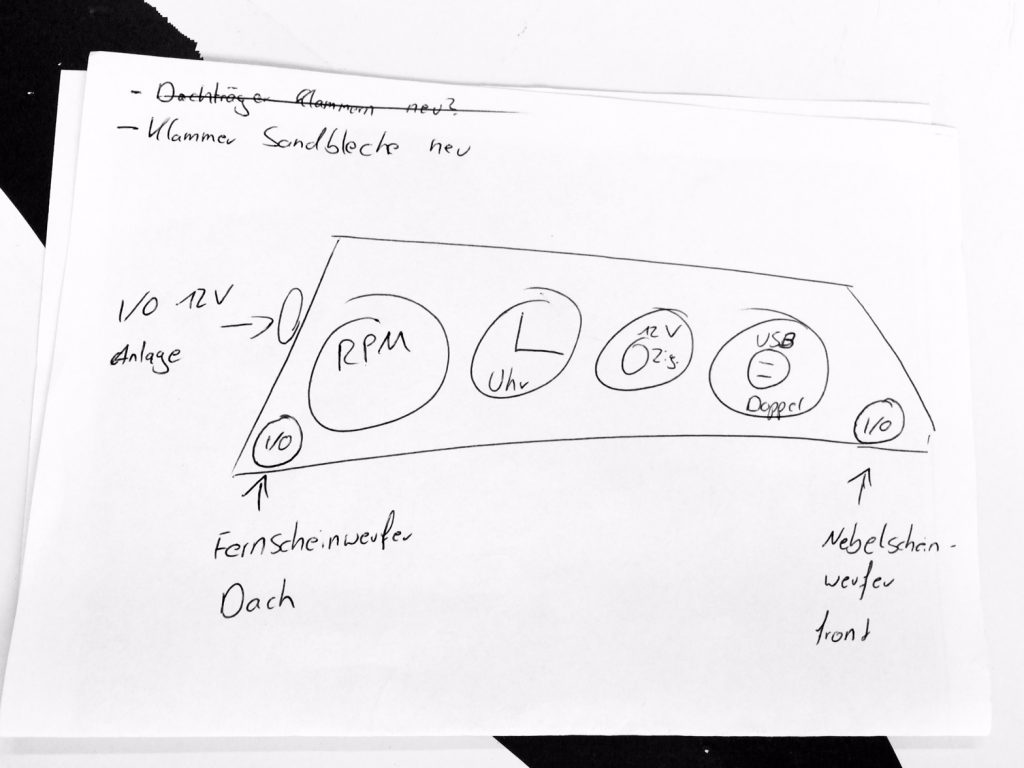 - Dachträger Klammern neu?
- Klammer Sandbleche neu
I/O 12V
Anlage
RPM
Uhr
12V
Zig.
USB
Doppel
I/O
I/O
Fernscheinwerfer
Dach
Nebelschein-
werfer
front